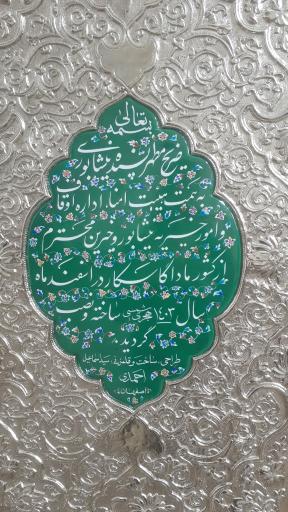 بسمه تعالی
ضریح مطهر سیده نیشابوری
به همت هیئت امنا، اداره اوقاف
و امور خیریه نیشابور و خیرین محترم
از کشور ماداگاسکار در اسفند ماه
سال ۱۴۰۲ هجری شمسی ساخته و نصب
گردید
طراحی، ساخت و قلمزنی: سید اسماعیل
احمدی
اصفهان